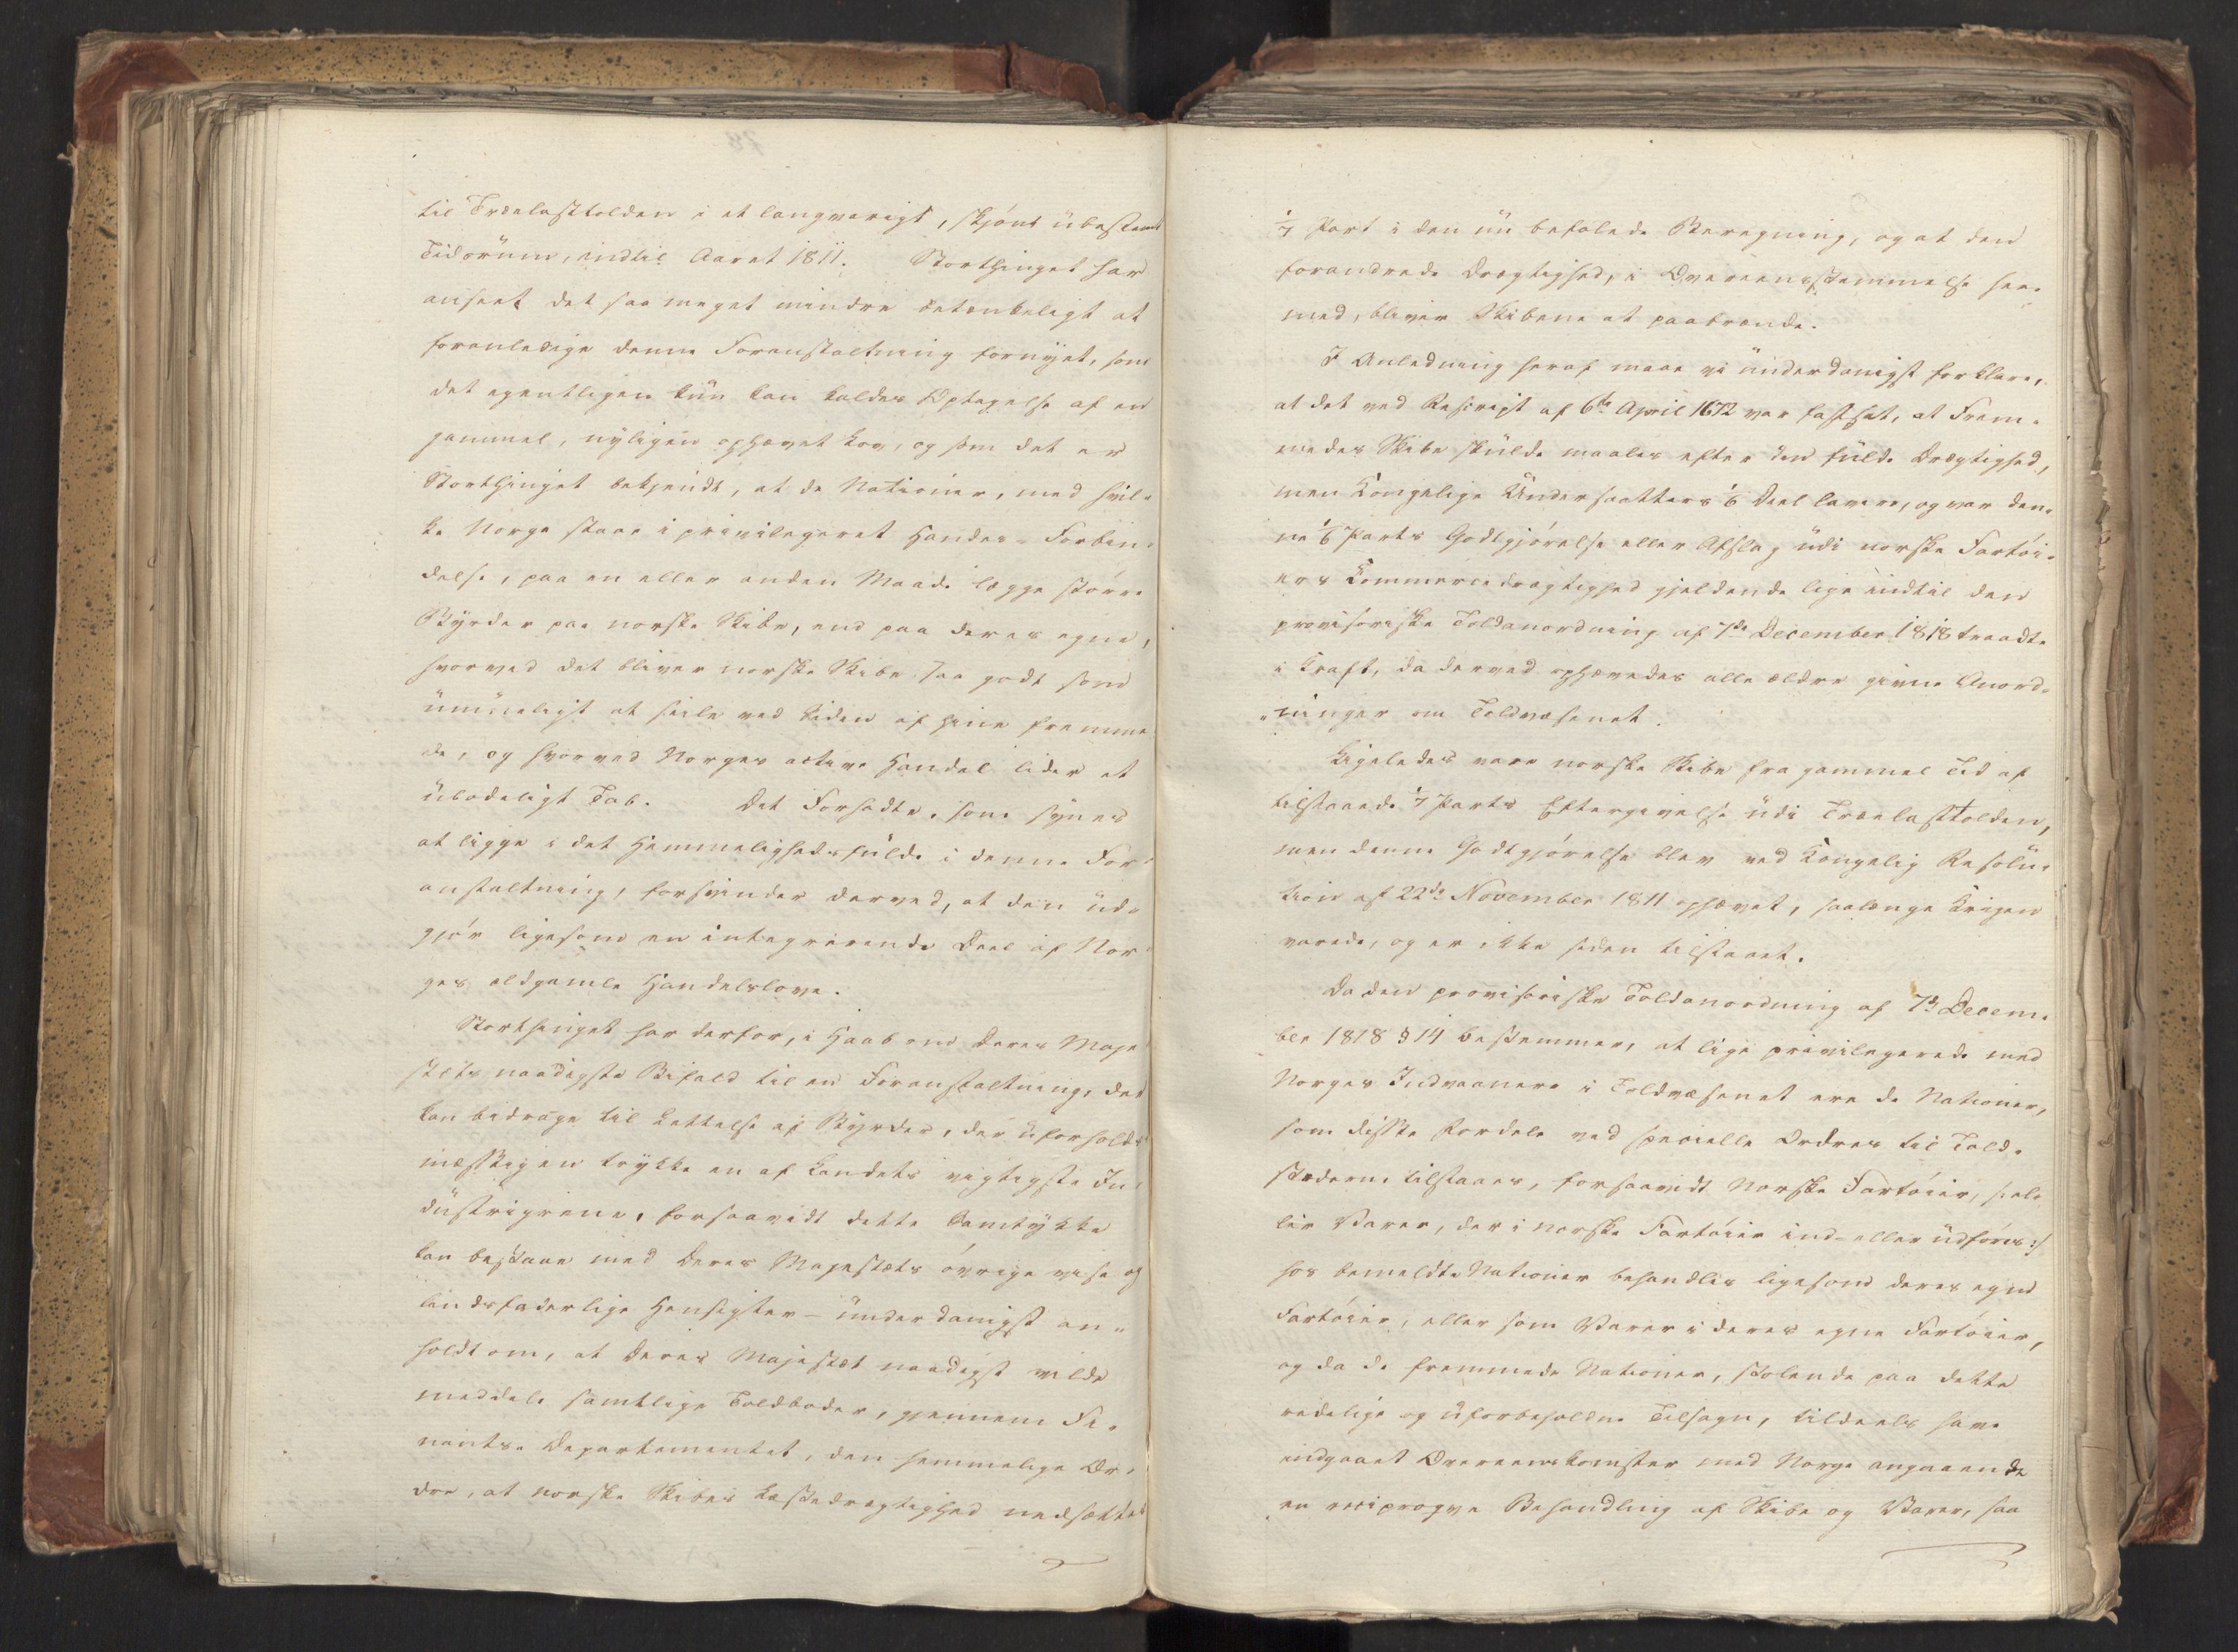 til Trælasttolden i et langvarigt, skjönt übestemt
Tidsrüm, indtil Aaret 1811. Storthinget har
anseet det saa meget mindre betænkeligt at
foranledige denne Foranstaltning fornÿet, som
det egentligen kün kan kaldes Optagelse af en
gammel, nÿligen ophævet Lov, og som det er
Storthinget bekjendt, at de Nationer, med hvil-
ke Norge staae i privilegeret Handes-Forbin-
delse, paa en eller anden Maade lægge större
Bÿrder paa norske Skibe, end paa deres egne,
hvorved det bliver norske Skibe saa godt som
ümüeligt at seile ved Siden af hine fremme
de, og hvorved Norges active Handel lider et
übodeligt Tab. Det Forhadte, som sÿnes
at ligge i det Hemmelighedsfülde i denne For-
anstaltning, forsvinder derved, at den üd-
gjör ligesom en integrerende Deel af Nor-
ges ældgamle Handelslove.
Storthinget har derfor, i Haab om Deres Maje
stæts naadigste Bifald til en Foranstaltning, der
kan bidrage til Lettelse af Bÿrder, der üforholds
mæssigen trÿkke en af Landets vigtigste In-
düstrigrene, forsaavidt dette Samtÿkke
kan bestaae med Deres Majestæts övrige vise og
landsfaderlige Hensigter – ünderdanigst an-
holdt om, at Deres Majestæt naadigst vilde
meddele samtlige Toldboder, gjennem Fi-
nants-Departementet, den hemmelige Or-
dre, at norske Skibes Læstedrægtighed nedsættes
1/7 Part i den nü befalede Beregning, og at den
forandrede Drægtighed, i Overeensstemmelse her-
med, bliver Skibene at paabrænde.
I Anledning heraf maae vi ünderdanigst forklare,
at det ved Rescript af 6te April 1672 var fastsat, at Frem-
medes Skibe skülde maales efter den fülde Drægtighed,
men Kongelige Ündersaatters 1/6 Deel lavere, og var den-
ne 1/6 Parts Godtgjörelse eller Afslag üdi norske Fartöi-
ers Commercedrægtighed gjeldende lige indtil den
provisoriske Toldanordning af 7de December 1818 traadte
i Kraft, da derved ophævedes alle ældre givne Anord-
ninger om Toldvæsenet.
Ligeledes vare norske Skibe fra gammel Tid af
tilstaaede 1/7 Parts Eftergivelse üdi Trælasttolden,
men denne Godtgjörelse blev ved Kongelig Resolü-
tion af 22de November 1811 ophævet, saalænge Krigen
varede, og er ikke siden tilstaaet.
Da den provisoriske Toldanordning af 7de Decem-
ber 1818 § 14 bestemmer, at lige privilegerede med
Norges Indvaanere i Toldvæsenet ere de Nationer,
som disse Fordele ved specielle Ordres til Told-
stederne tilstaaes, forsaavidt Norske Fartöier, /: el-
ler Varer, der i norske Fartöier ind- eller üdföres :/
hos bemeldte Nationer behandles ligesom deres egne
Fartöier, eller som Varer i deres egne Fartöier,
og da de fremmede Nationer, stolende paa dette
redelige og üforbeholdne Tilsagn, tildeels have
indgaaet Overeenskomster med Norge angaaende
en reciproqve Behandling af Skibe og Varer, saa